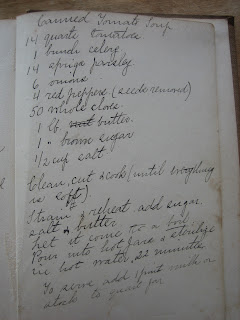 Canned Tomato Soup
14 quarts tomatoes
1 bunch celery
14 sprigs parsley
6 onions
4 red peppers (seeds removed)
50 whole cloves
1 lb butter.
1 " brown sugar
1/2 cup salt
Clean, cut & cook (until everything
is soft).
Strain & reheat add sugar
salt & butter
Let it come to a boil
Pour into hot jars & sterilize
in hot water, 22 minutes
To serve add 1 pint milk or
stock to quart jar